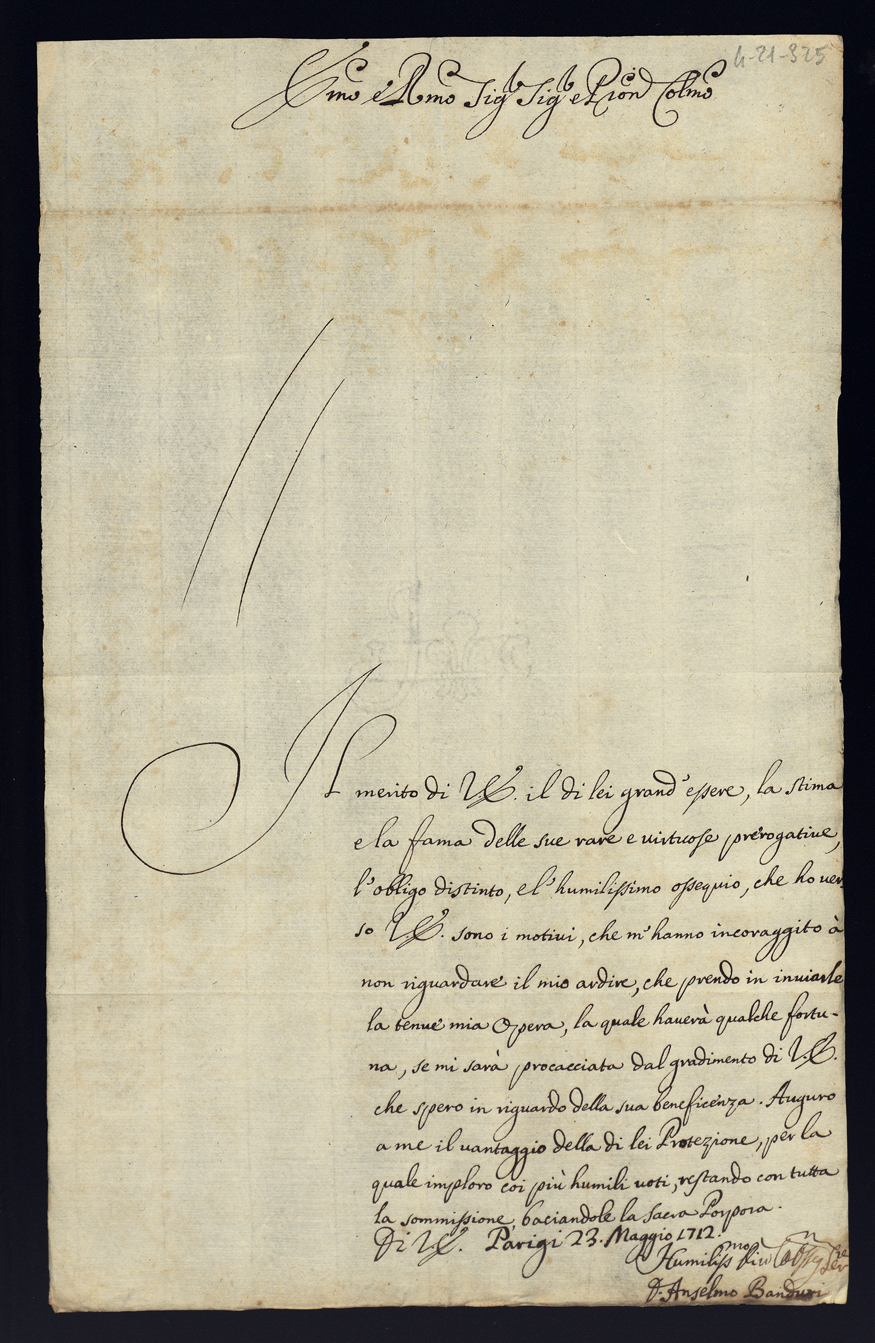 4-21-325
Emo e Rmo Sigr Sigr e Pron Colmo
Il merito di V.E. il di lei grand'essere, la stima
e la fama delle sue rare e virtuose prerogative,
l'obligo distinto, e l'humilissimo ossequio, che ho ver
so V.E. sono i motivi, che m'hanno incoraggito à
non riguardare il mio ardire, che prendo in inviarle
la tenue mia Opera, la quale haverà qualche fortu-
na, se mi sarà procacciata dal gradimento di V.E.
che spero in riguardo della sua beneficenza. Auguro
a me il vantaggio della di lei Protezione, per la
quale imploro coi più humili voti, restando con tutta
la sommissione, baciandole la Sacra Porpora.
Di V.E. Parigi 23. Maggio 1712.
Humilissmo Ser
D. Anselmo Banduri